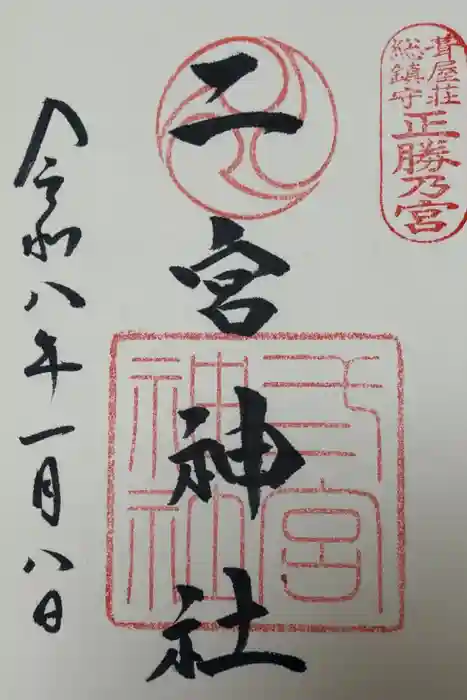 葺屋荘
総鎮守
正勝乃宮
二宮神社
弍宮
神社
令和八年一月八日